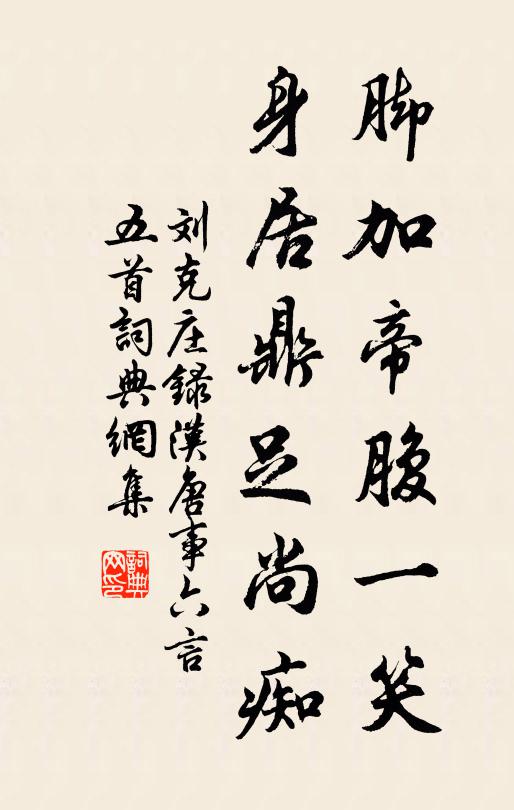 脚加帝腹一笑
身居鼎足尚痴
刘克庄録漢唐事六言
五首詞典網集
詞典
网印